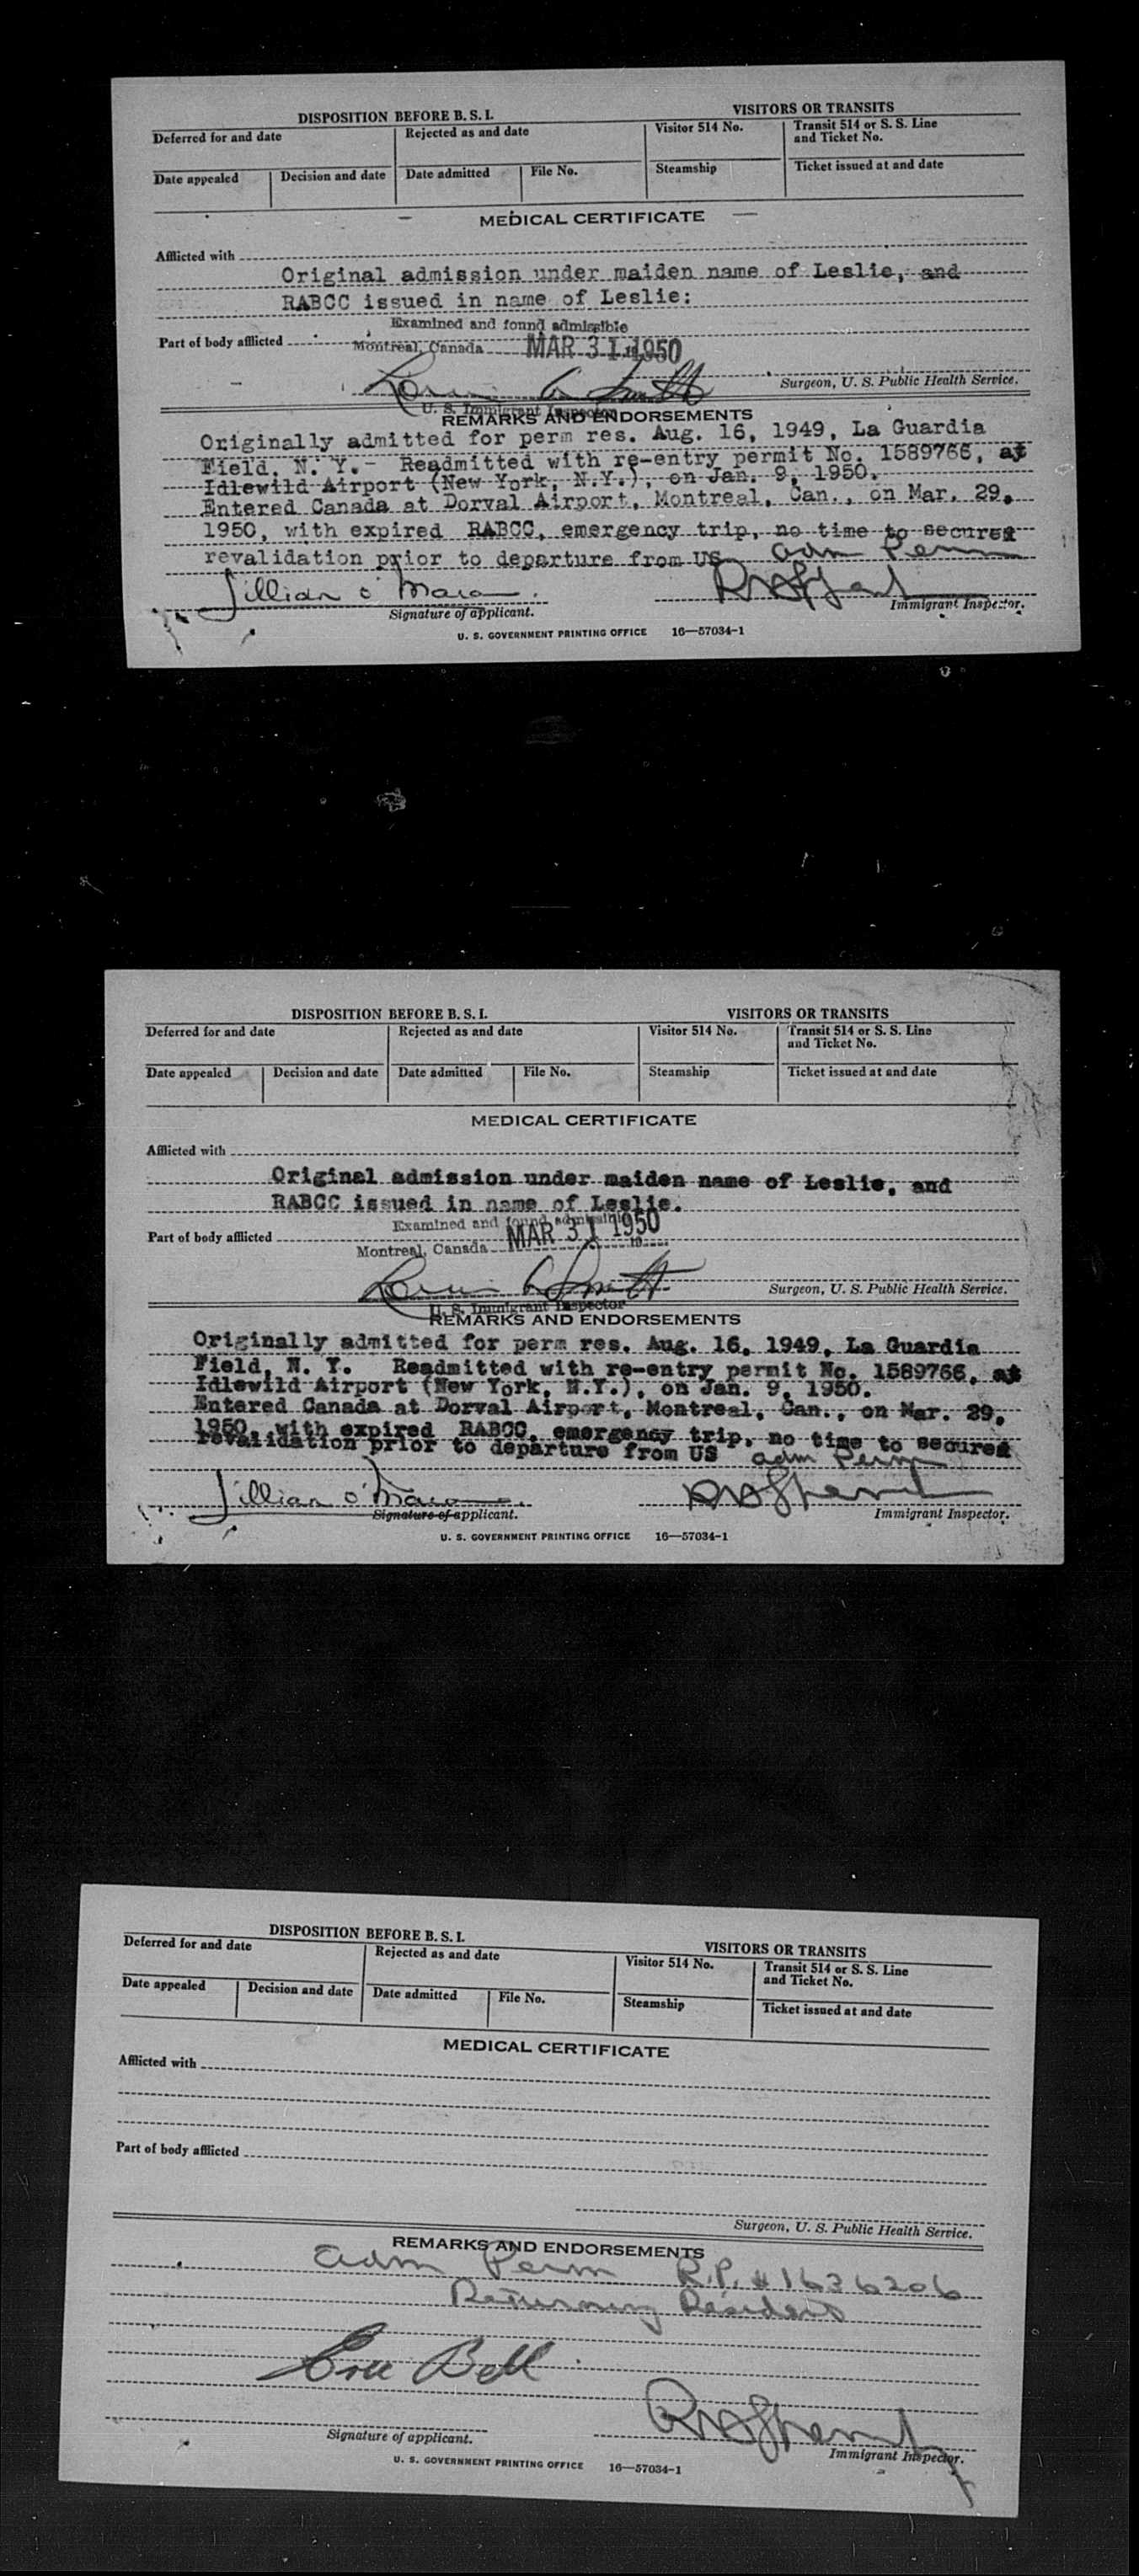 DISPOSITION BEFORE B. S. I. VISITORS OR TRANSITS
Deferred for and date Rejected as and date Visitor 514 No. Transit 514 or S. S. Line and Ticket No.
Date appealed Decision and date Date admitted File No. Steamship Ticket issued at and date
MEDICAL CERTIFICATE
Afflicted with
Original admission under maiden name of Leslie, and
RABCC issued in name of Leslie:
Examined and found admissible
Part of body afflicted Montreal, Canada MAR 31 1950
Surgeon, U. S. Public Health Service.
U. S. Immigrant Inspector
REMARKS AND ENDORSEMENTS
Originally admitted for perm res. Aug. 16, 1949, La Guardia
Field, N. Y.- Readmitted with re-entry permit No. 1589766, at
Idlewild Airport (New York, N.Y.), on Jan. 9, 1950.
Entered Canada at Dorval Airport, Montreal, Can., on Mar. 29,
1950, with expired RABCC, emergency trip, no time to secured
revalidation prior to departure from US adm Perm
Jillian O'Mara
Signature of applicant. Immigrant Inspector.
U. S. GOVERNMENT PRINTING OFFICE 16—57034-1
DISPOSITION BEFORE B. S. I. VISITORS OR TRANSITS
Deferred for and date Rejected as and date Visitor 514 No. Transit 514 or S. S. Line and Ticket No.
Date appealed Decision and date Date admitted File No. Steamship Ticket issued at and date
MEDICAL CERTIFICATE
Afflicted with
Original admission under maiden name of Leslie, and
RABCC issued in name of Leslie.
Examined and found admissible
Part of body afflicted Montreal, Canada MAR 31 1950 19
Surgeon, U. S. Public Health Service.
U. S. Immigrant Inspector
REMARKS AND ENDORSEMENTS
Originally admitted for perm res. Aug. 16, 1949, La Guardia
Field, N. Y. Readmitted with re-entry permit No. 1589766, at
Idlewild Airport (New York, N.Y.), on Jan. 9, 1950.
Entered Canada at Dorval Airport, Montreal, Can., on Mar. 29,
1950, with expired RABCC, emergency trip, no time to secured
revalidation prior to departure from US adm Perm
Jillian O'Mara
Signature of applicant. Immigrant Inspector.
U. S. GOVERNMENT PRINTING OFFICE 16—57034-1
DISPOSITION BEFORE B. S. I. VISITORS OR TRANSITS
Deferred for and date Rejected as and date Visitor 514 No. Transit 514 or S. S. Line and Ticket No.
Date appealed Decision and date Date admitted File No. Steamship Ticket issued at and date
MEDICAL CERTIFICATE
Afflicted with
Part of body afflicted
Surgeon, U. S. Public Health Service.
REMARKS AND ENDORSEMENTS
adm Perm R.P. # 1636206
Returning Resident
Eric Bell
Signature of applicant. Immigrant Inspector.
U. S. GOVERNMENT PRINTING OFFICE 16—57034-1